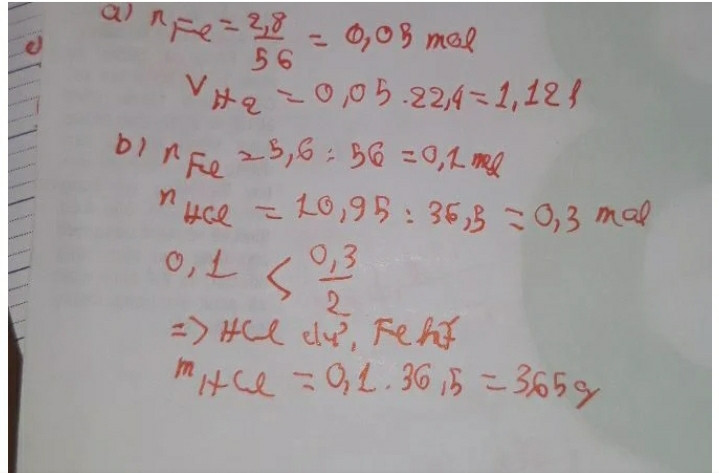 a) n Fe = 2,8/56 = 0,05 mol
V H2 = 0,05 . 22,4 = 1,12 l
b) n Fe = 5,6 : 56 = 0,1 mol
n HCl = 10,95 : 36,5 = 0,3 mol
0,1 < 0,3/2
=> HCl dư, Fe hết
m HCl = 0,1 . 36,5 = 3,65 g